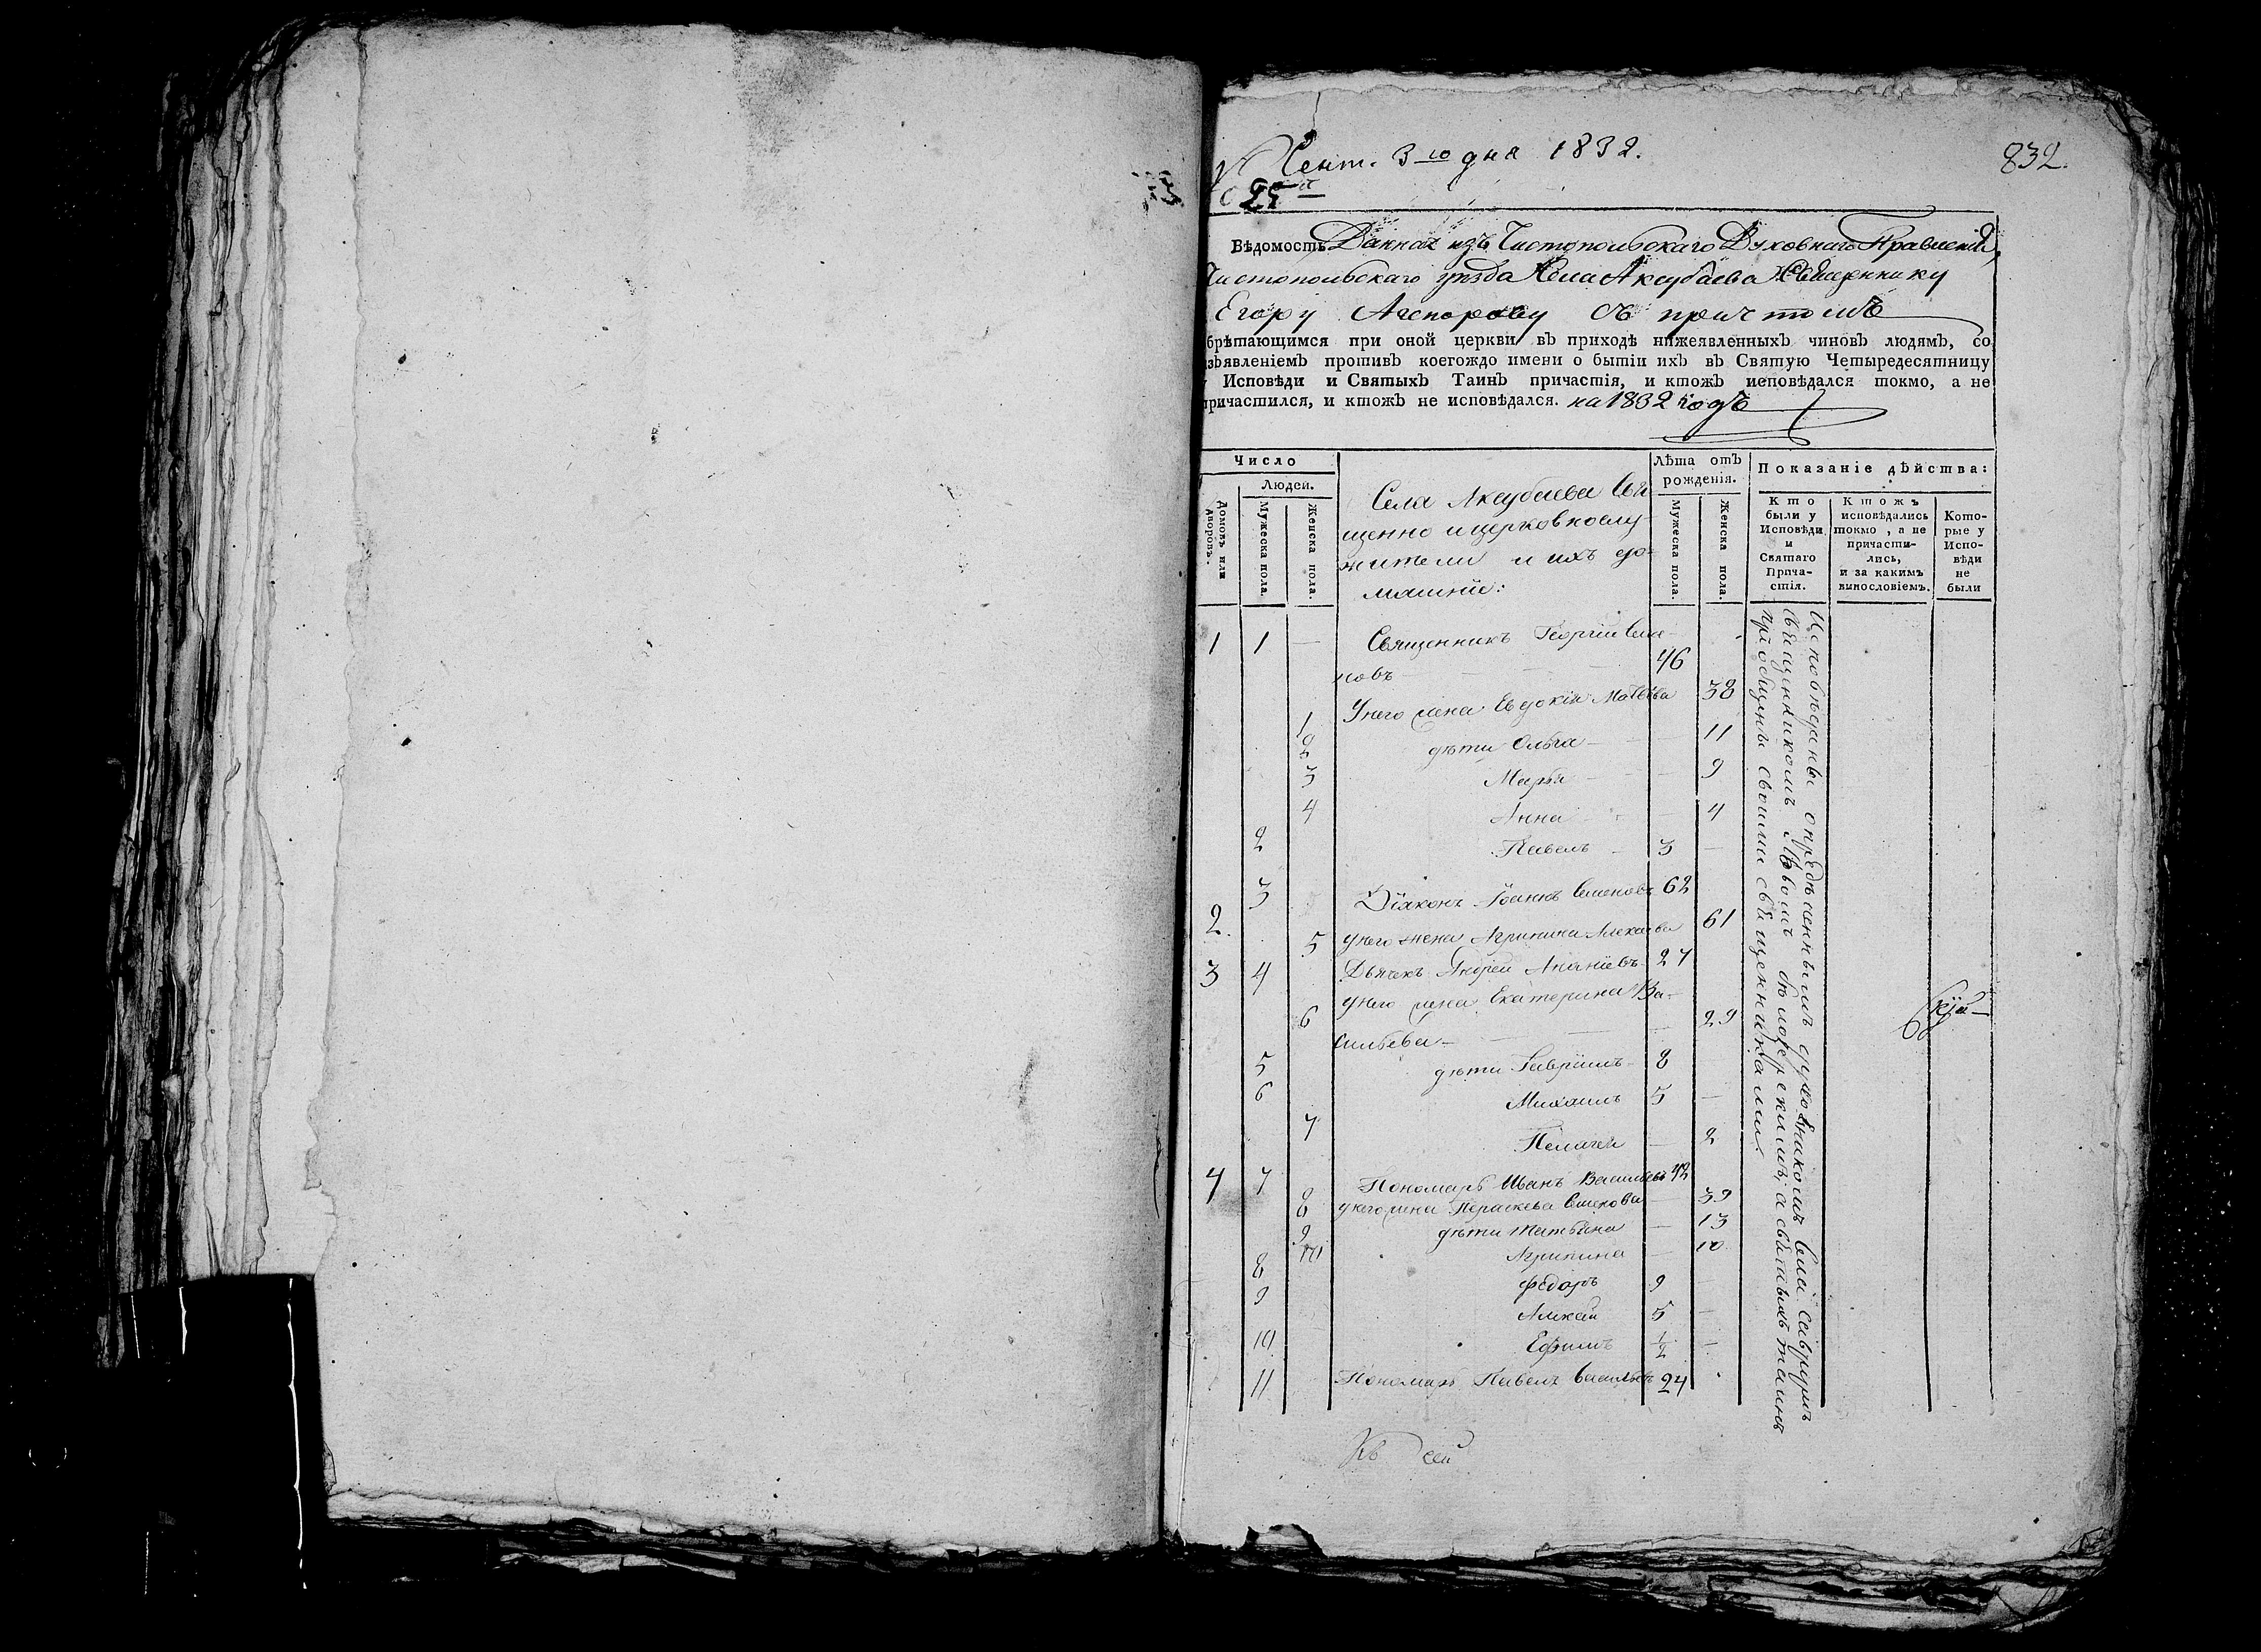 Сент. 3го дня 1832.
832.
№ 25й
Вѣдомость Данная изъ Чистопольскаго Духовнаго Правленія,
Чистопольскаго уѣзда Села Аксубаева Священнику
Егору съ причтомъ
брѣтающимся при оной церкви въ приходѣ нижеявленныхъ чиновъ людямъ, со
изъявленіемъ противъ коегождо имени о бытіи ихъ въ Святую Четыредесятницу
у Исповѣди и Святыхъ Таинъ причастія, и ктожъ исповѣдался токмо, а не
причастился, и ктожъ не исповѣдался. на 1832 годъ
Число
Людей.
Домовъ или дворовъ.
Мужеска пола.
Женска пола.
Села Аксубаева Свя-
щенно и церковнослу-
жители и ихъ до-
машніе:
Лѣта отъ рожденія.
Мужеска пола.
Женска пола.
Показаніе дѣйства:
Кто были у Исповѣди и Святаго Прича-стія.
Ктожъ исповѣдались токмо, а не причасти-лись, и за какимъ винословіемъ.
Кото-рые у Испо-вѣди не были
1 1 — Священникъ Георгій Семе-
новъ — 46
1 У него жена Евдокія Матвѣева 38
2 дѣти Ольга — 11
3 Марья — 9
4 Анна — 4
2 Павелъ — 3 —
2. 3 Діаконъ Іоаннъ Семеновъ 62
5 у него жена Агрипина 61
3 4 Дьячекъ Андрей Ананіевъ 27
6 у него жена Екатерина Ва-
сильева — 29
5 дѣти Гавріилъ 8
6 Михаилъ 5 —
7 Пелагея — 2
4 7 Пономарь Иванъ Васильевъ 42
8 у него жена Параскева Семенова 39
9 дѣти Татьяна — 13
10 Агрипина — 10
8 Федоръ 9 —
9 5 —
10 Ефимъ ½ —
11 Пономарь Павелъ Васильевъ 24
Исповѣданы опредѣленнымъ духовникомъ
священникомъ а святыхъ таинъ
пріобщены своими священниками.